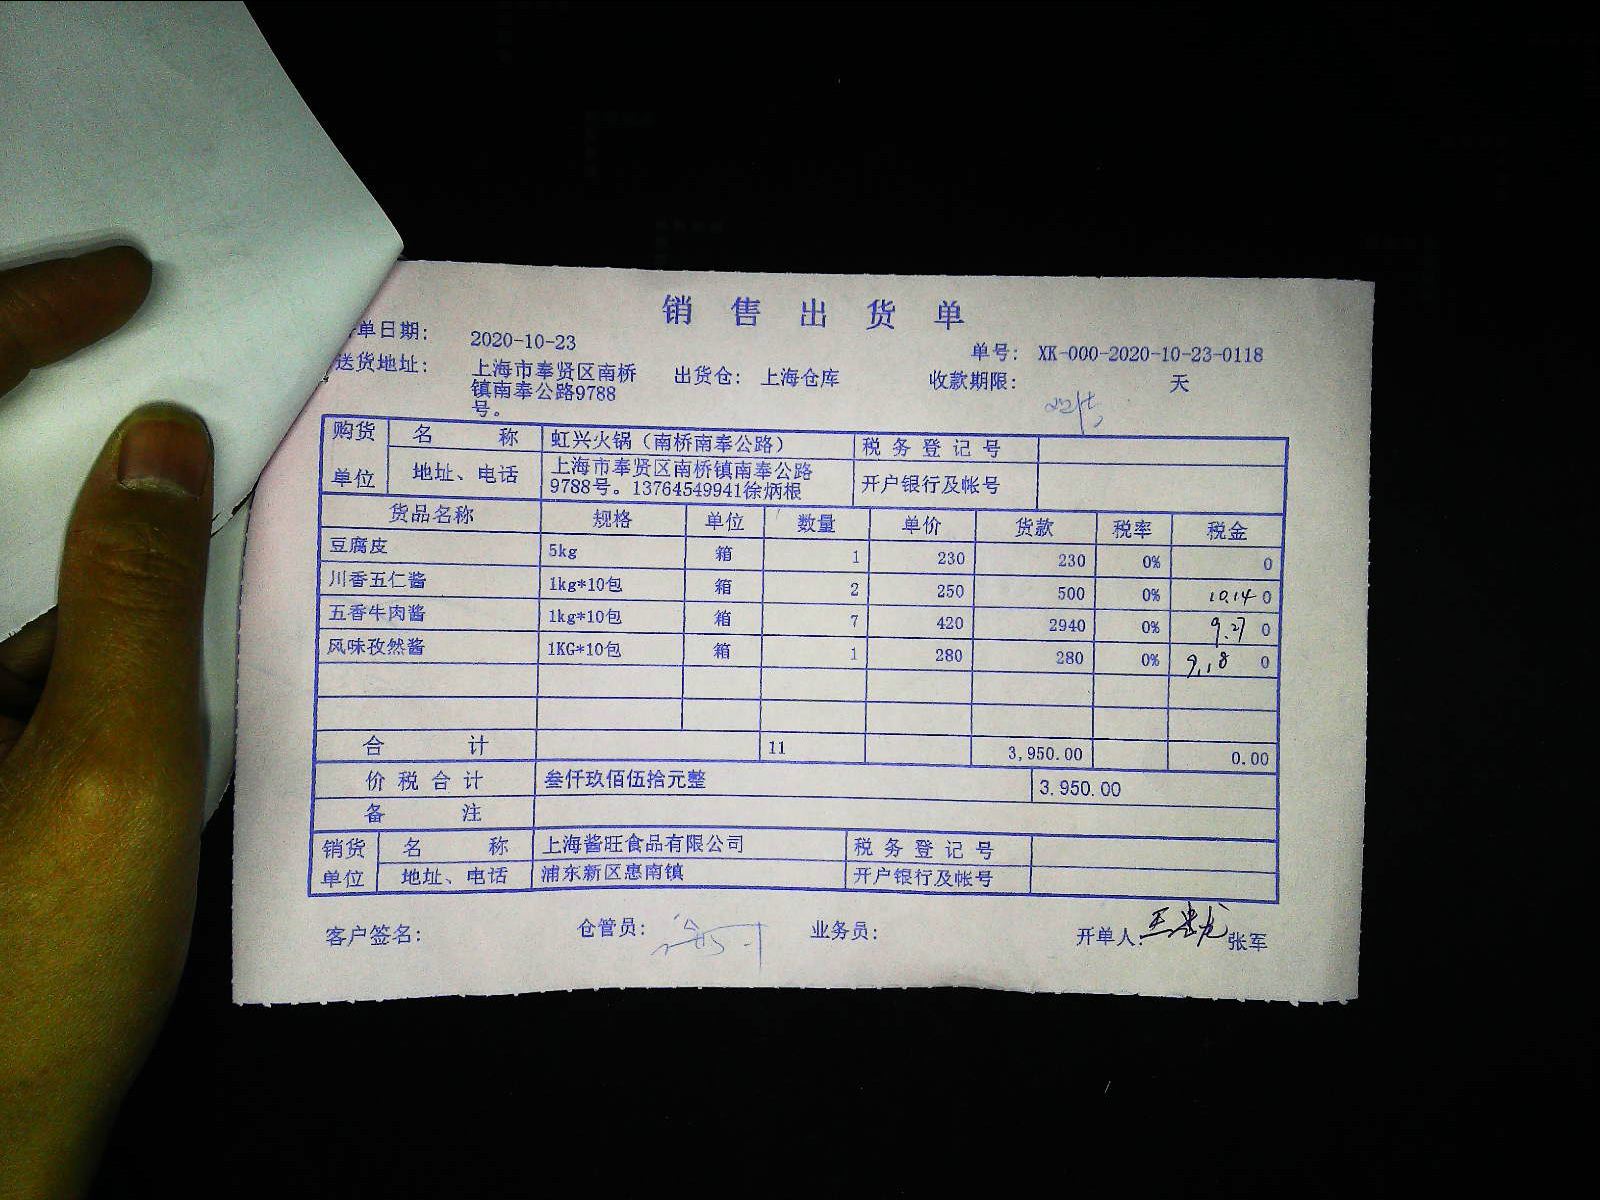 销售出货单
单日期： 2020-10-23
单号： XK-000-2020-10-23-0118
送货地址： 上海市奉贤区南桥
镇南奉公路9788
号。
出货仓： 上海仓库
收款期限： 天
购货
单位
名 称 虹兴火锅（南桥南奉公路） 税务登记号
地址、电话 上海市奉贤区南桥镇南奉公路
9788号。13764549941徐炳根
开户银行及帐号
货品名称 规格 单位 数量 单价 货款 税率 税金
豆腐皮 5kg 箱 1 230 230 0% 0
川香五仁酱 1kg*10包 箱 2 250 500 0% 10.14 0
五香牛肉酱 1kg*10包 箱 7 420 2940 0% 9.27 0
风味孜然酱 1KG*10包 箱 1 280 280 0% 9.18 0
合 计 11 3,950.00 0.00
价税合计 叁仟玖佰伍拾元整 3,950.00
备 注
销货
单位
名 称 上海酱旺食品有限公司 税务登记号
地址、电话 浦东新区惠南镇 开户银行及帐号
客户签名： 仓管员： 业务员： 开单人： 张军